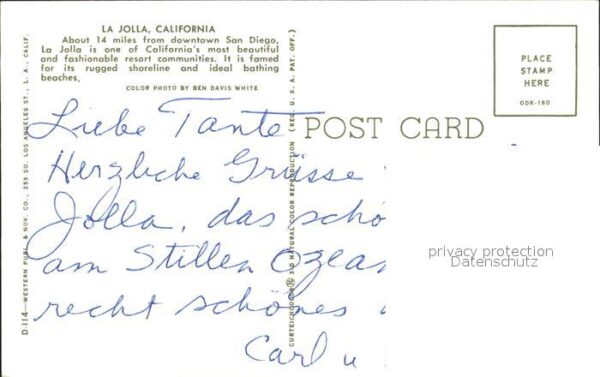 LA JOLLA, CALIFORNIA
About 14 miles from downtown San Diego,
La Jolla is one of California's most beautiful
and fashionable resort communities. It is famed
for its rugged shoreline and ideal bathing
beaches.
COLOR PHOTO BY BEN DAVIS WHITE
PLACE
STAMP
HERE
ODK-180
POST CARD
Liebe Tante
Herzliche Grüsse
Jolla, das schö
am Stillen Ozean
recht schönes
Carl u
D-114—WESTERN PUBL. & NOV. CO., 259 SO. LOS ANGELES ST., L. A., CALIF.
CURTEICHCOLOR® 3-D NATURAL COLOR REPRODUCTION (REG. U. S. A. PAT. OFF.)
privacy protection
Datenschutz